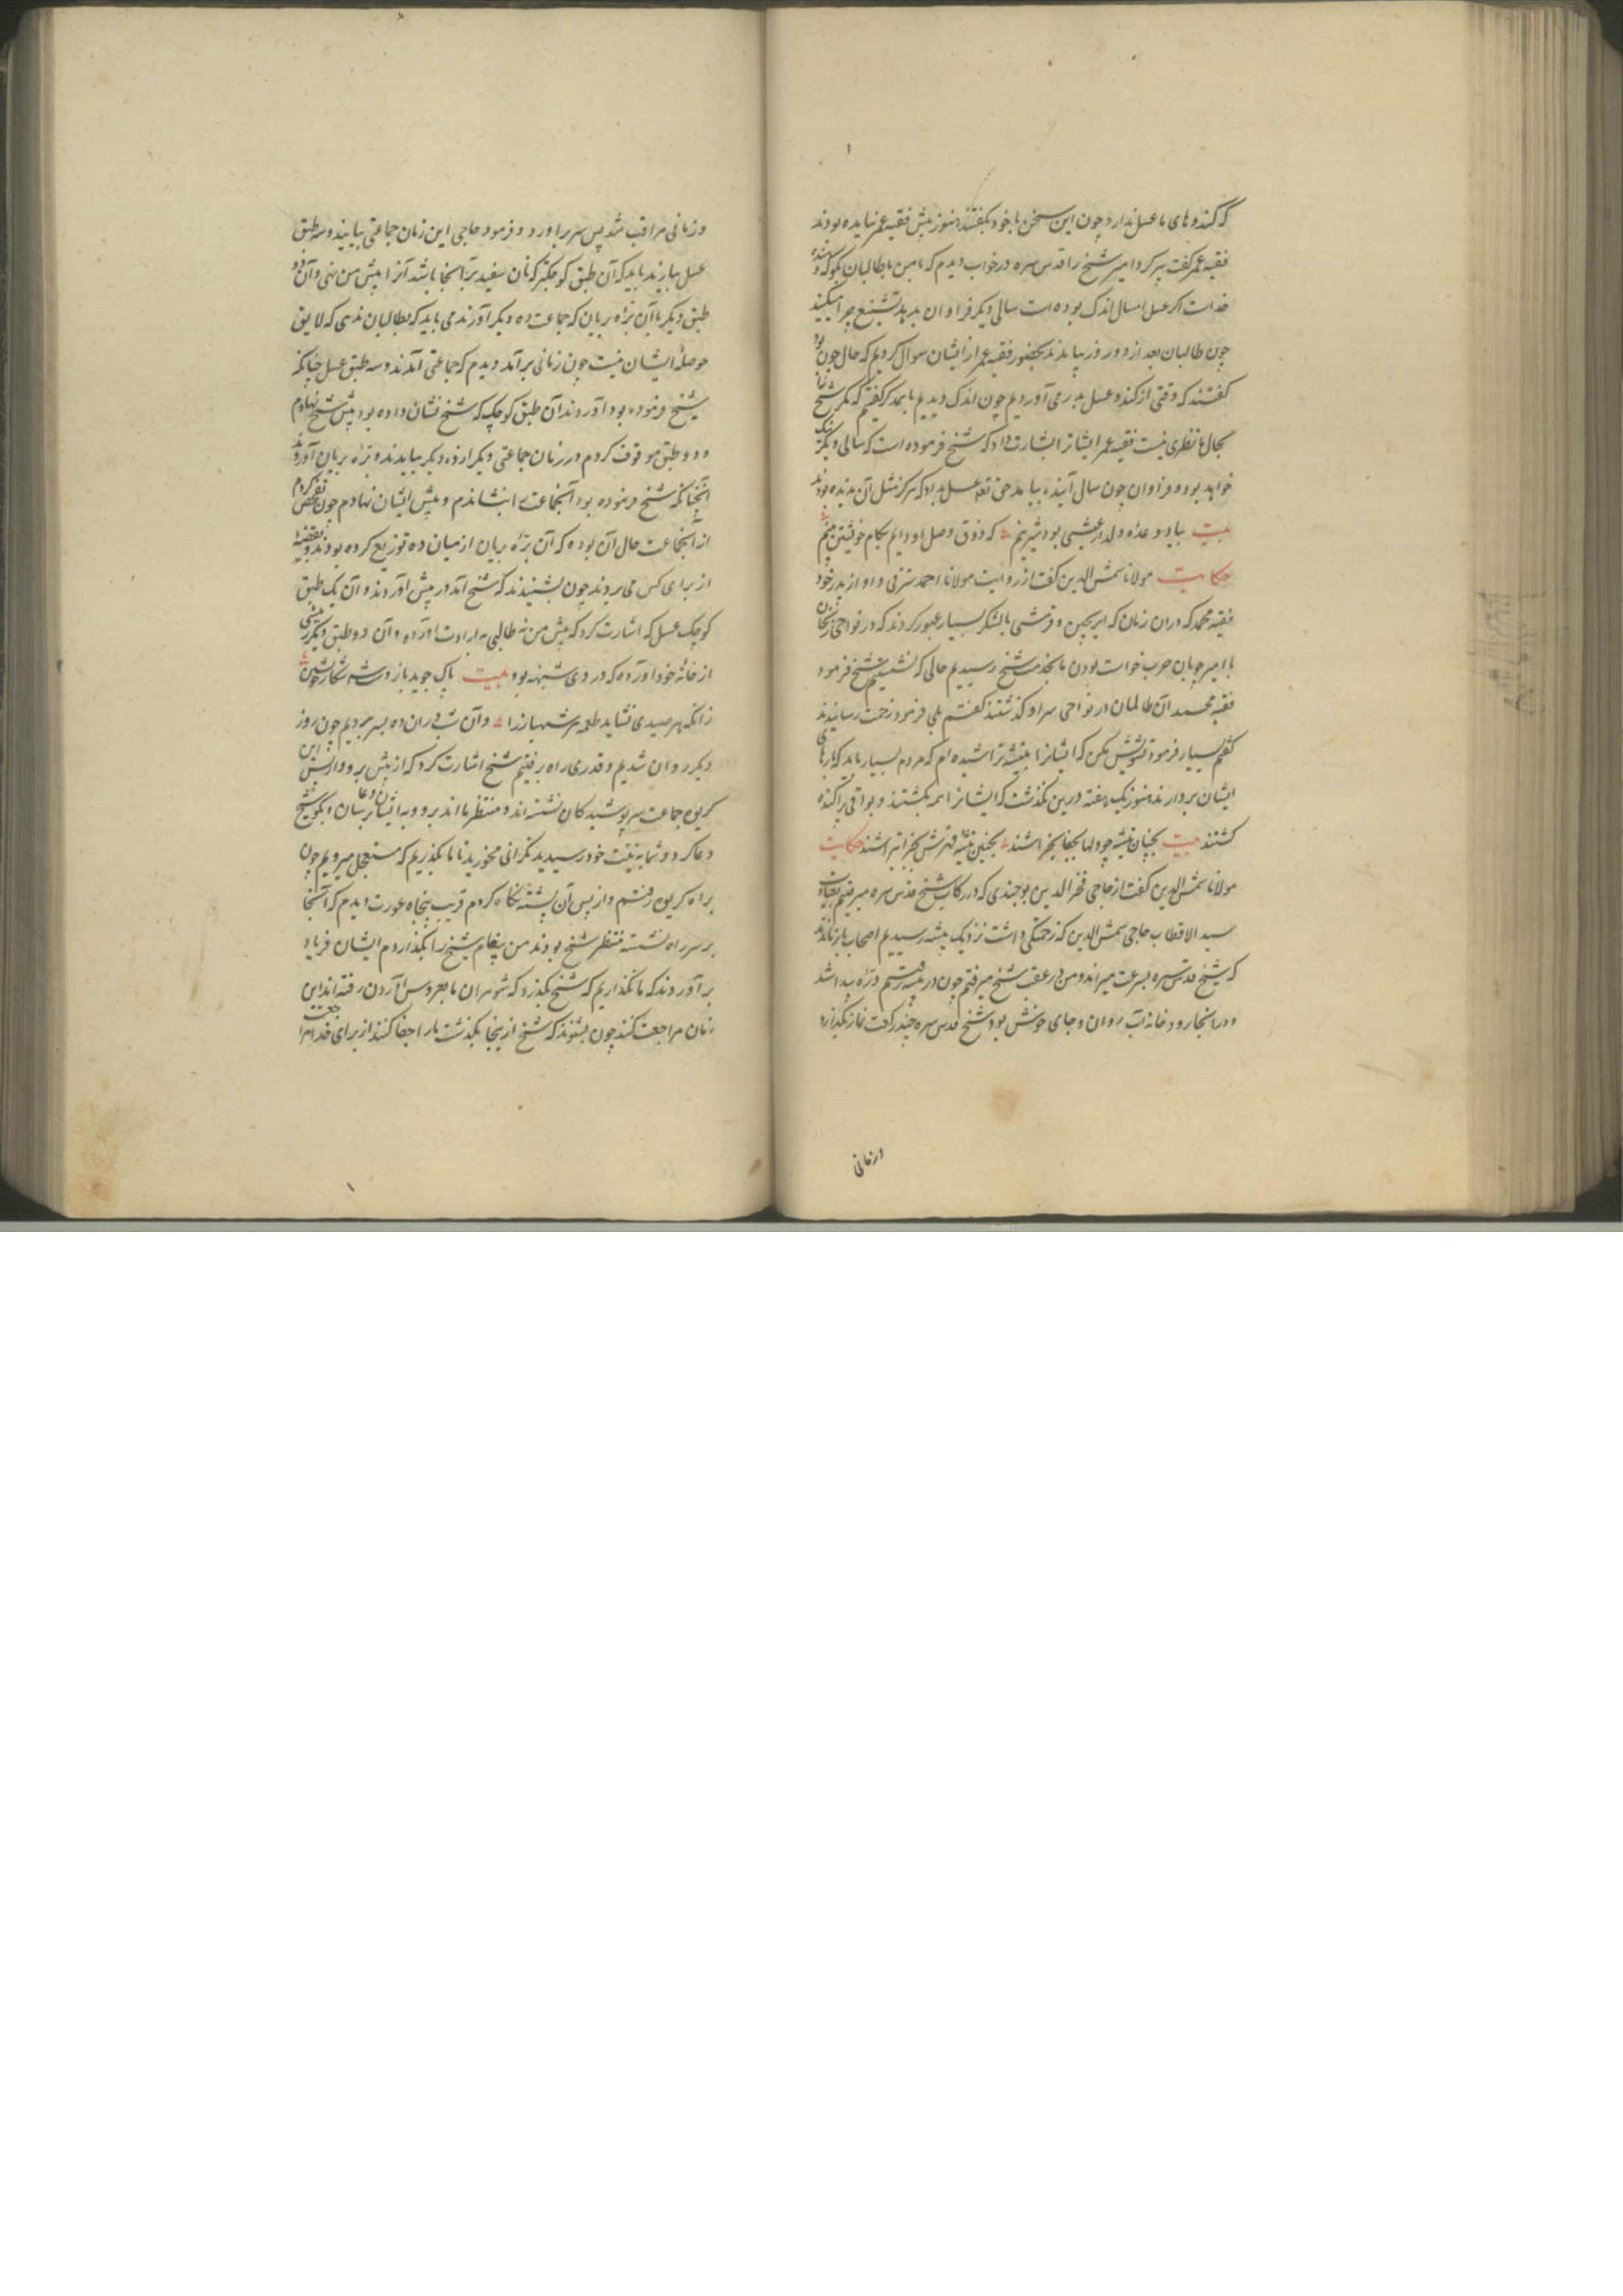 که کندوهای ما عسل ندارد چون این سخن با خود بگفتند هنوز پیش فقیه عمر نیامده بودند
فقیه عمر گفت پیر کردامیر شیخ را قدس سره در خواب دیدم که با من با طالبان بگو که بنده
خداست اگر عسل امسال اندک بوده است سالی دیگر فراوان بدهد تشنیع چرا میکنید
چون طالبان بعد از دو روز بیامدند بحضور فقیه عمر از ایشان سوال کردیم که حال چون بود
گفتند که وقتی از کندو عسل بدر می آوردیم چون اندک دیدیم با همدگر گفتیم که مگر شیخ را
بحال ما نظری نیست فقیه عمر ایشانرا بشارت داد که شیخ فرموده است که سالی دیگر نیک
خواهد بود و فراوان چون سال آینده بیامد حق تعالی عسل بداد که هرگز مثل آن ندیده بودند
بیت بیاد وعده دلدار عیشی بود شیرینم که ذوق وصل او دایم بکام خویشتن بینم
حکایت مولانا شمس الدین گفت از روایت مولانا احمد و او از پدر خود
فقیه محمد که دران زمان که ایرنجین و قرمشی با لشکر بسیار عبور کردند که در نواحی زنجان
با امیر چوبان حرب خواست بودن ما بخدمت شیخ رسیدیم حالی که نشستیم شیخ فرمود
فقیه محمد آن ظالمان در نواحی سراو گذشتند گفتم بلی فرمود زحمت رسانیدند
گفتم بسیار فرمود تشویش مکن که ایشانرا بتیشه تراشیده ام که مردم بسیار باید که بارهای
ایشان بردارند هنوز یک هفته درین نگذشت که ایشانرا همه بکشتند و بواقی پراکنده
گشتند بیت حکایت
مولانا شمس الدین گفت از حاجی فخر الدین بوجندی که در رکاب شیخ قدس سره میرفتم بعیادت
سید الاقطاب حاجی شمس الدین که زحمتکی داشت نزدیک بیشه رسیدیم اصحاب باز ماندند
که شیخ قدس سره بسرعت میراند و من در عقب شیخ میرفتم چون در بیشه رفتیم دره پیدا شد
و در انجا رودخانه آب روان و جای خوش بود شیخ قدس سره چند رکعت نماز بگذارد
و زمانی
و زمانی مراقب شد پس سر برآورد و فرمود حاجی این زمان جماعتی بیایند و سه طبق
عسل بیارند باید که آن طبق کوچکتر که نان سفید بر آنجا باشد آنرا پیش من نهی و آن دو
طبق دیگر با آن بره بریان که جماعت ده دیگر آورند می باید که بطالبان ندهی که لایق
حوصله ایشان نیست چون زمانی برآمد دیدم که جماعتی آمدند و سه طبق عسل چنانکه
شیخ فرموده بود آوردند آن طبق کوچک که شیخ نشان داده بود پیش شیخ نهادم
و دو طبق موقوف کردم در زمان جماعتی دیگر از ده دیگر بیامدند و بره بریان آوردند
آنچنانکه شیخ فرموده بود آنجماعت را بنشاندم و پیش ایشان نهادم چون تفحص کردم
از آنجماعت حال آن بوده که آن بره بریان از میان ده توزیع کرده بودند و بتعصب
از برای کس می بردند چون بشنیدند که شیخ آمد در پیش آوردند و آن یک طبق
کوچک عسل که اشارت کرد که پیش من نه طالبی به ارادت آورده و آن دو طبق دیگر رئیس
از خانه خود آورده که در وی شبهه بود بیت پاک جوید باز دست شه شکار خویشتن
زانکه هر صیدی نشاید طعمه مر شهباز را و آن شب دران ده بسر بردیم چون روز
دیگر روان شدیم و قدری راه برفتیم شیخ اشارت کرد که از پیش برو و از پس این
کریوه جماعت سرپوشیدگان نشسته اند و منتظر ما اند برو و به ایشان دعا برسان و بگو شیخ
دعا کرد و شما به نیت خود رسیدید نگرانی مخورید تا ما بگذریم که مستعجل میرویم چون
براه کریوه رفتم و از پس آن پشته نگاه کردم قریب پنجاه عورت دیدم که آنجا
بر سر راه نشسته منتظر شیخ بودند من پیغام شیخ را بگذاردم ایشان فریاد
برآوردند که ما نگذاریم که شیخ بگذرد که شوهران ما بعروس آوردن رفته اند این
زمان مراجعت کنند چون بشنوند که شیخ از اینجا بگذشت ما را جفا کنند از برای خدا مرا